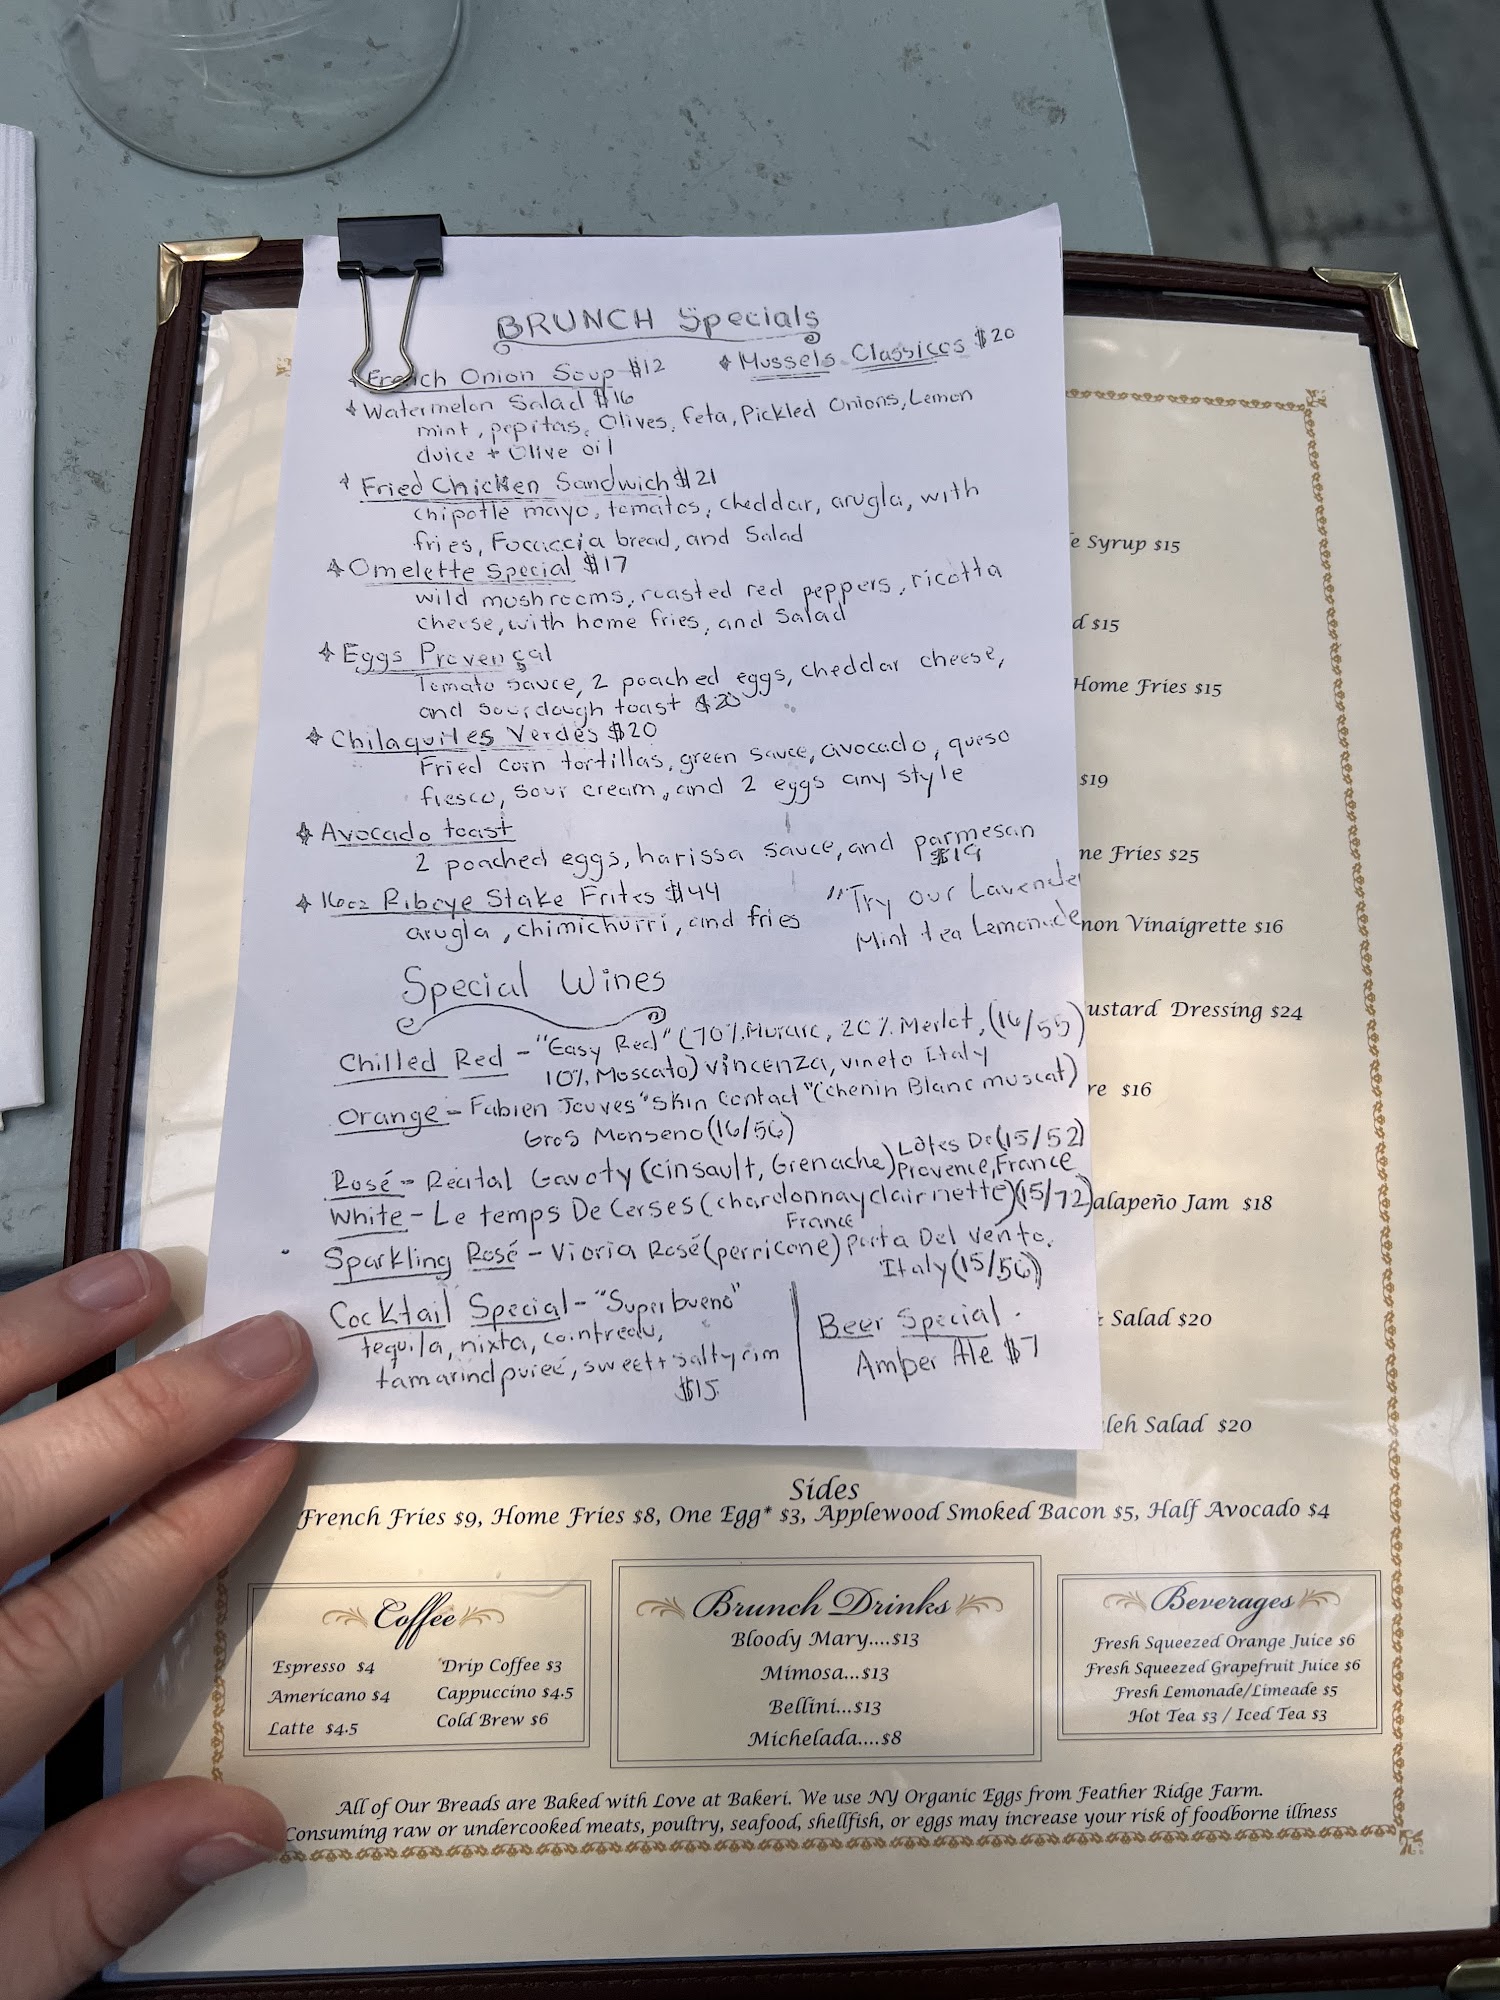 BRUNCH Specials
French Onion Soup $12
Mussels Classicos $20
Watermelon Salad $16
mint, pepitas, Olives, feta, Pickled Onions, Lemon
Juice + Olive oil
Fried Chicken Sandwich $21
chipotle mayo, tomatos, cheddar, arugla, with
fries, Foccaccia bread, and Salad
Omelette Special $17
wild mushrooms, roasted red peppers, ricotta
cheese, with home fries, and Salad
Eggs Provençal
Tomato sauce, 2 poached eggs, cheddar cheese,
and sourdough toast $20
Chilaquiles Verdes $20
Fried corn tortillas, green sauce, avocado, queso
fresco, sour cream, and 2 eggs any style
Avocado toast
2 poached eggs, harissa sauce, and parmesan
$19
16oz Ribeye Stake Frites $44
arugla, chimichurri, and fries
"Try our Lavender
Mint tea Lemonade
Special Wines
Chilled Red - "Easy Red" (70% 20% Merlot, (16/55)
10% Moscato) Vincenza, vineto Italy
Orange - Fabien Jouves "Skin Contact" (Chenin Blanc muscat)
Gros Monseno (16/56)
Rosé - Recital Gavoty (cinsault, Grenache) Côtes De (15/52)
Provence, France
White - Le temps De Cerses (chardonnay clairnette) (15/72)
France
Sparkling Rosé - Vioria Rosé (perricone) Porta Del Vento,
Italy (15/56)
Cocktail Special - "Superbueno"
tequila, nixta, cointreau,
tamarind pureé, sweet + salty rim
$15
Beer Special
Amber Ale $7
Syrup $15
$15
Home Fries $15
$19
Fries $25
Vinaigrette $16
Dressing $24
$16
Jam $18
Salad $20
Salad $20
Sides
French Fries $9, Home Fries $8, One Egg* $3, Applewood Smoked Bacon $5, Half Avocado $4
Coffee
Espresso $4
Drip Coffee $3
Americano $4
Cappuccino $4.5
Latte $4.5
Cold Brew $6
Brunch Drinks
Bloody Mary....$13
Mimosa...$13
Bellini...$13
Michelada....$8
Beverages
Fresh Squeezed Orange Juice $6
Fresh Squeezed Grapefruit Juice $6
Fresh Lemonade/Limeade $5
Hot Tea $3 / Iced Tea $3
All of Our Breads are Baked with Love at Bakeri. We use NY Organic Eggs from Feather Ridge Farm.
Consuming raw or undercooked meats, poultry, seafood, shellfish, or eggs may increase your risk of foodborne illness